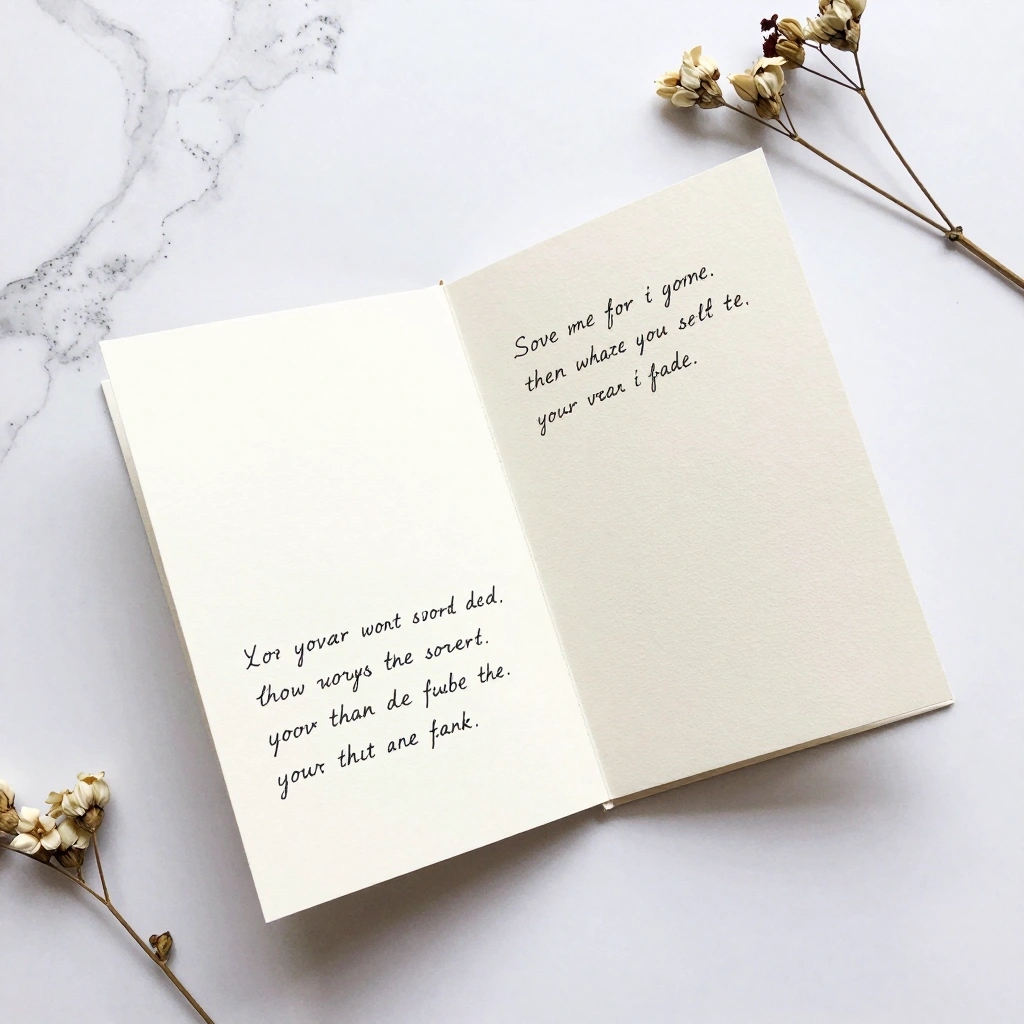 Yor yovar wont svord ded.
thow worys the sorert.
yoov than de fwbe the.
your thit ane fank.
Sove me for i gorne.
then whaze you selt te.
your vear i fade.